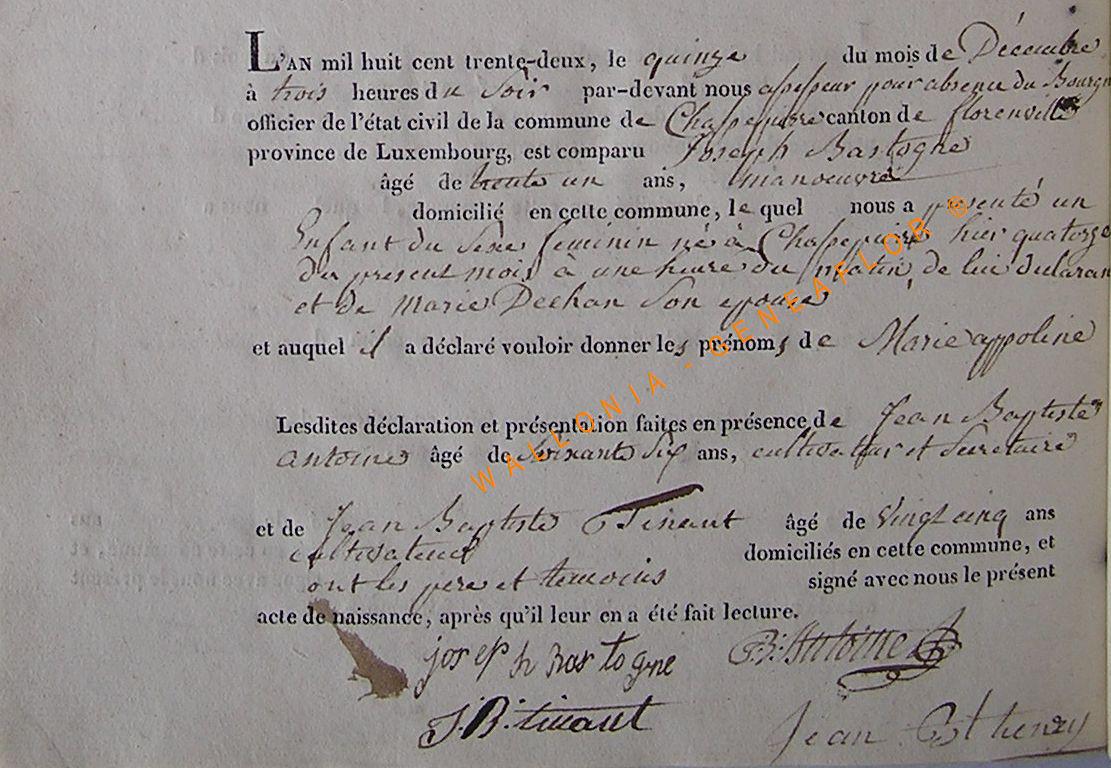 L'AN mil huit cent trente-deux, le quinze du mois de Décembre
à trois heures du Soir par-devant nous assesseur pour absence du Bourgm
officier de l'état civil de la commune de Chassepierre canton de florenville
province de Luxembourg, est comparu Joseph Bastogne
âgé de trente un ans, manoeuvre
domicilié en cette commune, lequel nous a présenté un
Enfant du Sexe feminin né à Chassepierre hier quatorze
du present mois à une heure du matin, de lui declarant
et de Marie Dechan Son epouse
et auquel il a déclaré vouloir donner les prénoms de Marie appoline
Lesdites déclaration et présentation faites en présence de Jean Baptiste
antoine âgé de Soixante Six ans, cultivateur et Secretaire
et de Jean Baptiste Tinant âgé de Vingt cinq ans
cultivateur domiciliés en cette commune, et
ont les pere et temoins signé avec nous le présent
acte de naissance, après qu'il leur en a été fait lecture.
joseph Bastogne B: Antoine
J:B: tinant Jean Bt henry
WALLONIA - GENEAFLOR ®